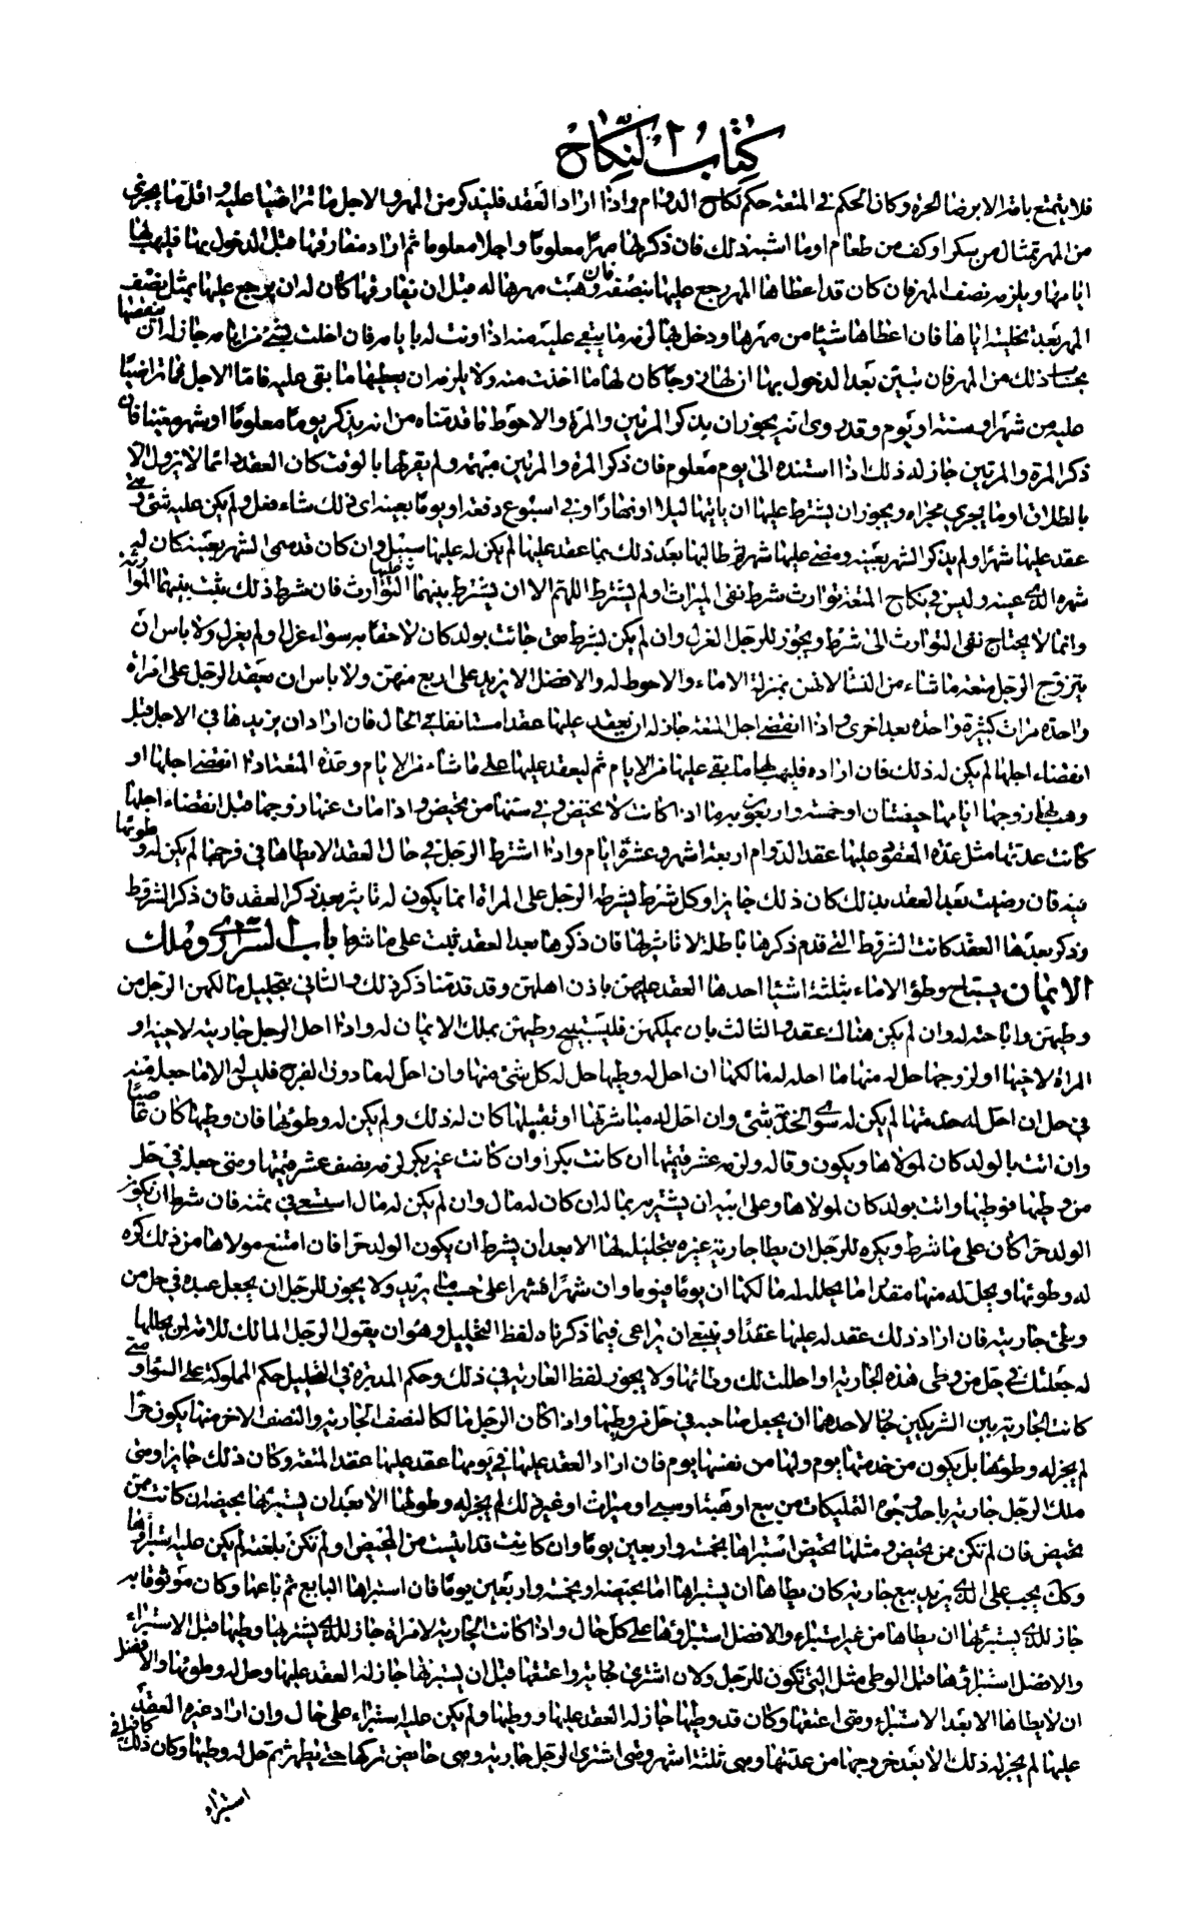 كتاب النكاح
فلا يتمتع بامة الا برضا الحرة وكان الحكم في المتعة حكم نكاح الدوام واذا اراد العقد فليذكر من المهر والاجل ما تراضيا عليه واقل ما يجزي
من المهر تمثال من سكر او كف من طعام او ما اشبه ذلك فان ذكر لها مهرا معلوما واجلا معلوما ثم اراد مفارقتها قبل الدخول بها فليهب لها
ايامها ويلزمه نصف المهر فان كان قد اعطاها المهر رجع عليها بنصفه فان وهبت مهرها له قبل ان يفارقها كان له ان يرجع عليها بمثل نصف
المهر بعد تخليته اياها فان اعطاها شيئا من مهرها ودخل بها لزمه ما يبقى عليه منه اذا وفت له بايامه فان اخلت بشئ من ايامه جاز له ان ينقصها
بحساب ذلك من المهر فان تبين بعد الدخول بها ان لها زوجا كان لها ما اخذت منه ولا يلزمه ان يعطيها ما بقى عليه فاما الاجل فما تراضيا
عليه من شهر او سنة او يوم وقد روى انه يجوز ان يذكر المرتين والمرة والاحوط ما قدمناه من انه يذكر يوما معلوما او شهرا معينا فان
ذكر المرة والمرتين جاز له ذلك اذا استنده الى يوم معلوم فان ذكر المرة والمرتين مبهمة ولم يقرنها بالوقت كان العقد دائما لا يزول الا
بالطلاق او ما يجري مجراه ويجوز ان يشترط عليها ان ياتيها ليلا او نهارا او في اسبوع دفعة او يوما بعينه اى ذلك شاء فعل ولم يكن عليه شئ ومتى
عقد عليها شهرا ولم يذكر الشهر بعينه ومضى عليها شهر ثم طالبها بعد ذلك بما عقد عليها لم يكن له عليها سبيل وان كان قد سمى الشهر بعينه كان له
شهره الذى عينه وليس في نكاح المتعة توارث شرط نفى الميراث او لم يشترط اللهم الا ان يشترط بينهما التوارث فان شرط ذلك ثبت بينهما الموارثة
وانما لا يحتاج نفى التوارث الى شرط ويجوز للرجل العزل وان لم يكن يشترط متى جائت بولد كان لاحقا به سواء عزل او لم يعزل ولا باس ان
يتزوج الرجل متعة ما شاء من النساء لانهن بمنزلة الاماء والاحوط له والافضل الا يزيد على اربع منهن ولا باس ان يعقد الرجل على امراة
واحدة مرات كثيرة واحدة بعد اخرى واذا انقضى اجل المتعة جاز له ان يعقد عليها عقدا مستانفا في الحال فان اراد ان يزيدها في الاجل قبل
انقضاء اجلها لم يكن له ذلك فان اراده فليهب لها ما بقى عليها من الايام ثم ليعقد عليها على ما شاء من الايام وعدة المتعة اذا انقضى اجلها او
وهب لها زوجها ايامها حيضتان او خمسة واربعون يوما اذا كانت لا تحيض وفي سنها من تحيض واذا مات عنها زوجها قبل انقضاء اجلها
كانت عدتها مثل عدة المعقود عليها عقد الدوام اربعة اشهر وعشرة ايام واذا اشترط الرجل في حال العقد الا يطاها في فرجها لم يكن له وطوئها
فيه فان رضيت بعد العقد بذلك كان ذلك جايزا وكل شرط يشرطه الرجل على المراة انما يكون له تاثير بعد ذكر العقد فان ذكر الشرط
وذكر بعدها العقد كانت الشروط التى قدم ذكرها باطلة لا تاثير لها فان ذكرها بعد العقد ثبت على ما شرط باب السرارى وملك
الايمان يستباح وطؤ الاماء بثلثة اشيا احدها العقد عليهن باذن اهلهن وقد قدمنا ذكر ذلك والثانى بتحليل مالكهن الرجل من
وطيهن واباحته له وان لم يكن هناك عقد والثالث بان يملكهن فليستبيح وطيهن بملك الايمان له واذا احل الرجل جاريته لاخيه او
المراة لاخيها او لزوجها حل له منها ما احله له مالكها ان احل له وطيها حل له كل شئ منها وان احل له ما دون الفرج فليس له الا ما جعله منه
في حل ان احل له خدمتها لم يكن له سوى الخدمة شئ وان احل له مباشرتها او تقبيلها كان له ذلك ولم يكن له وطوئها فان وطيها كان عاصيا
وان اتت بالولد كان لمولاها ويكون رقا له ولزمه عشر قيمتها ان كانت بكرا وان كانت غير بكر لزمه نصف عشر قيمتها ومتى جعله في حل
من وطيها فوطيها واتت بولد كان لمولاها وعلى ابيه ان يشتريه بماله ان كان له مال وان لم يكن له مال استسعى في ثمنه فان شرط ان يكون
الولد حرا كان على ما شرط ويكره للرجل ان يطا جارية غيره بتحليله لها الا بعد ان يشرط ان يكون الولد حرا فان امتنع مولاها من ذلك كره
له وطوئها ويحل له منها مقدار ما يحلله له مالكها ان يوما فيوما وان شهرا فشهرا على حسب ما يريد ولا يجوز للرجل ان يجعل عبده في حل من
وطئ جاريته فان اراد ذلك عقد له عليها عقدا وينبغى ان يراعى فيما ذكرناه لفظ التحليل وهو ان يقول الرجل المالك للامة لمن يحللها
له جعلتك في حل من وطى هذه الجارية او احللت لك وطائها ولا يجوز لفظ العارية في ذلك وحكم المدبرة في التحليل حكم المملوكة على السواء ومتى
كانت الجارية بين الشريكين جاز لاحدهما ان يجعل صاحبه في حل من وطيها واذا كان الرجل مالكا لنصف الجارية والنصف الاخر منها يكون حرا
لم يجز له وطوئها بل يكون من خدمتها يوم ولها من نفسها يوم فان اراد العقد عليها في يومها عقد عليها عقد المتعة وكان ذلك جايزا ومتى
ملك الرجل جارية باحد وجوه التمليكات من بيع او هبة او سبى او ميراث او غير ذلك لم يجز له وطوئها الا بعد ان يستبرئها بحيضة ان كانت ممن
تحيض فان لم تكن ممن تحيض ومثلها تحيض استبراها بخمسة واربعين يوما وان كانت قد ايست من المحيض او لم تكن بلغته لم يكن عليه استبرائها
وكك يجب على الذى يريد بيع جارية كان يطاها ان يستبراها اما بحيضة او بخمسة واربعين يوما فان استبراها البايع ثم باعها وكان موثوقا به
جاز للذى يشتريها ان يطاها من غير استبراء والافضل استبراؤها على كل حال واذا كانت الجارية لامراة جاز للذى يشتريها وطيها قبل الاستبراء
والافضل استبراؤها قبل الوطى مثل التى تكون للرجل ولان اشترى جارية واعتقها قبل ان يستبرئها جاز له العقد عليها وحل له وطوئها والافضل
ان لا يطاها الا بعد الاستبراء ومتى اعتقها وكان قد وطيها جاز له العقد عليها ووطيها ولم يكن عليه استبراء على حال وان اراد غيره العقد
عليها لم يجز له ذلك الا بعد خروجها من عدتها وهى ثلثة اشهر ومتى اشترى الرجل جارية وهى حايض تركها حتى تطهر ثم حل له وطيها وكان ذلك كافيا في
استبراء